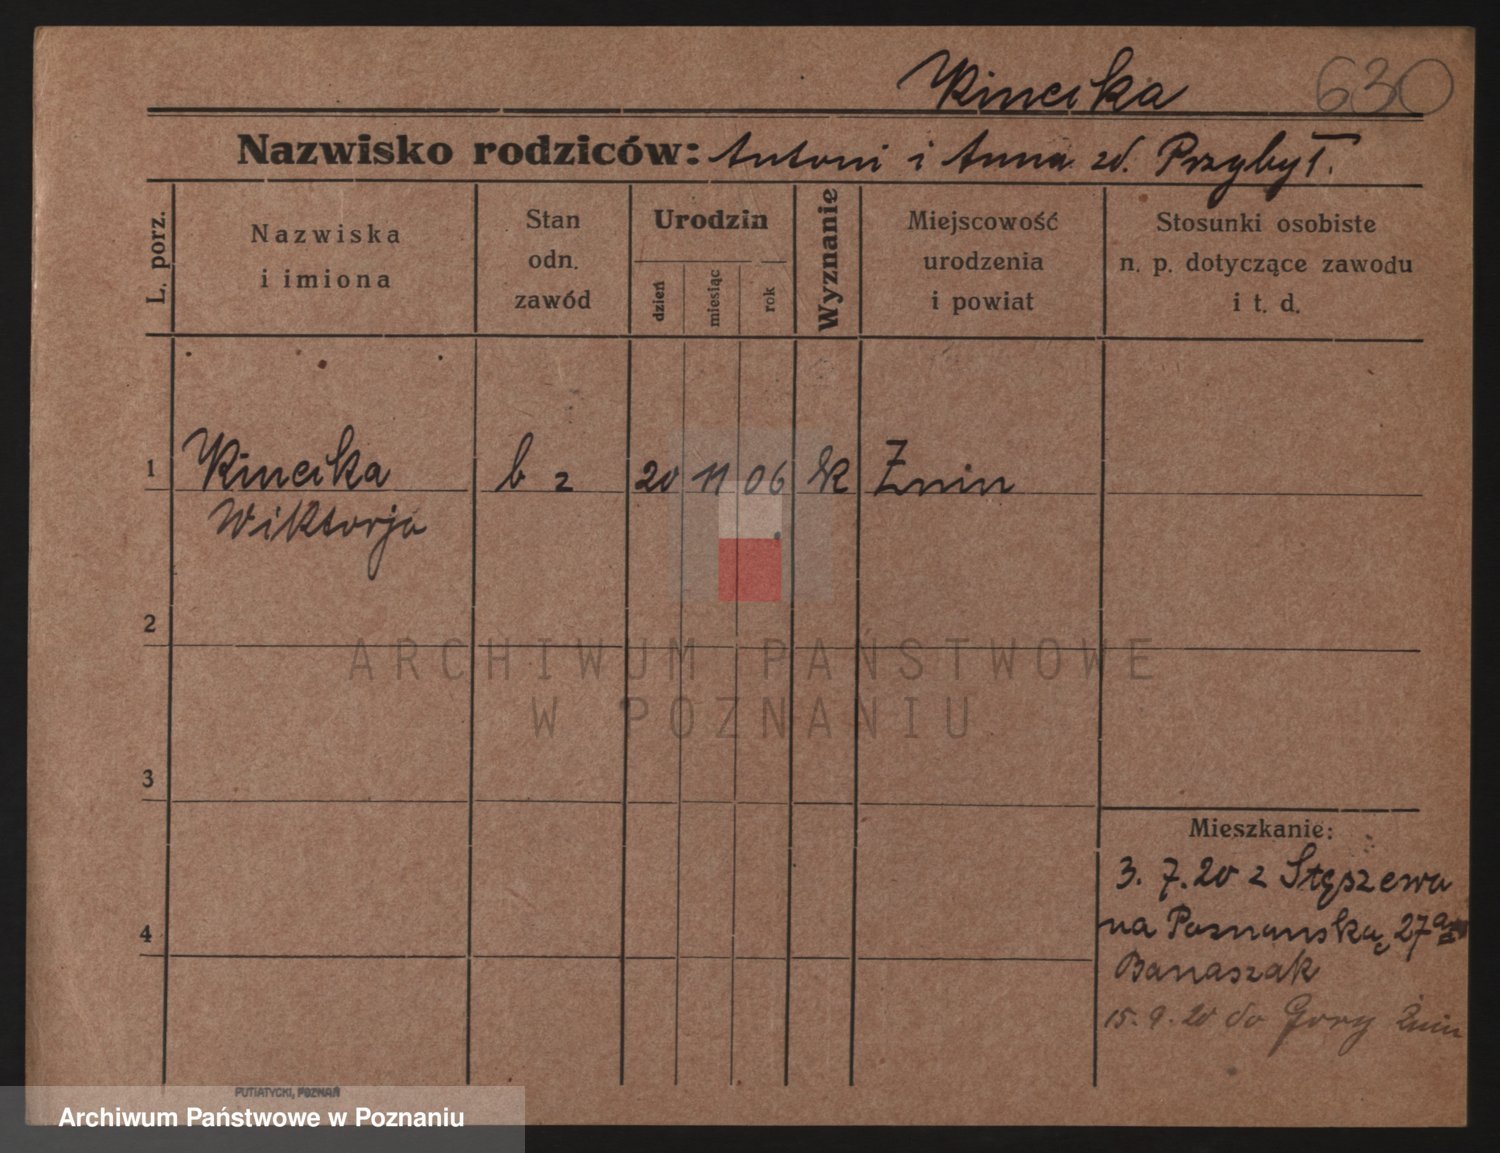 Kincika 630
Nazwisko rodziców: Antoni i Anna zd. Przybył.
L. porz.
Nazwiska
i imiona
Stan
odn.
zawód
Urodzin
dzień
miesiąc
rok
Wyznanie
Miejscowość
urodzenia
i powiat
Stosunki osobiste
n. p. dotyczące zawodu
i t. d.
1 Kincika b z 20 11 06 k Żnin
Wiktorja
2
ARCHIWUM PAŃSTWOWE
W POZNANIU
3
Mieszkanie:
3. 7. 20 z Stęszewa
4
na Poznańską 27a
Banaszak
15. 9. 20 do Gory Żnin
PUTIATYCKI, POZNAŃ
Archiwum Państwowe w Poznaniu